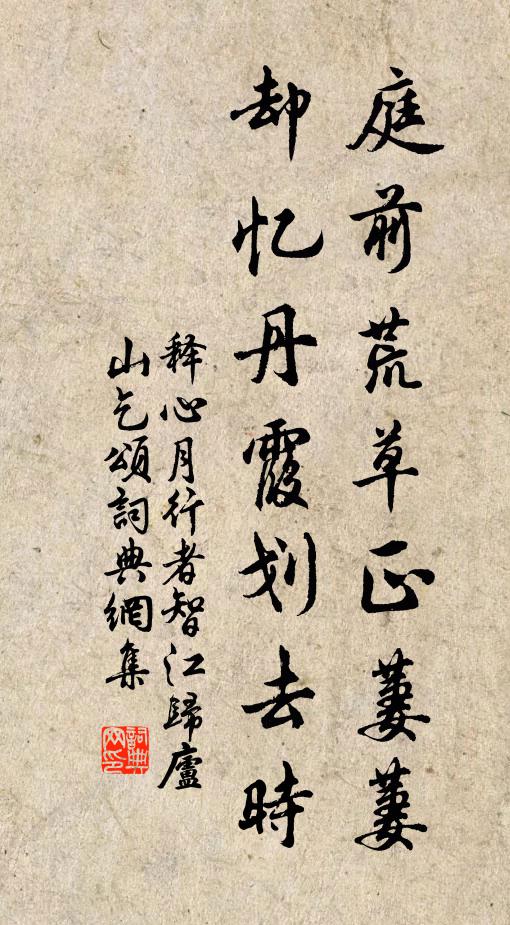 庭前荒草正萋萋
却忆丹霞划去時
释心月行者智江歸廬
山乞頌詞典網集
詞典
网印